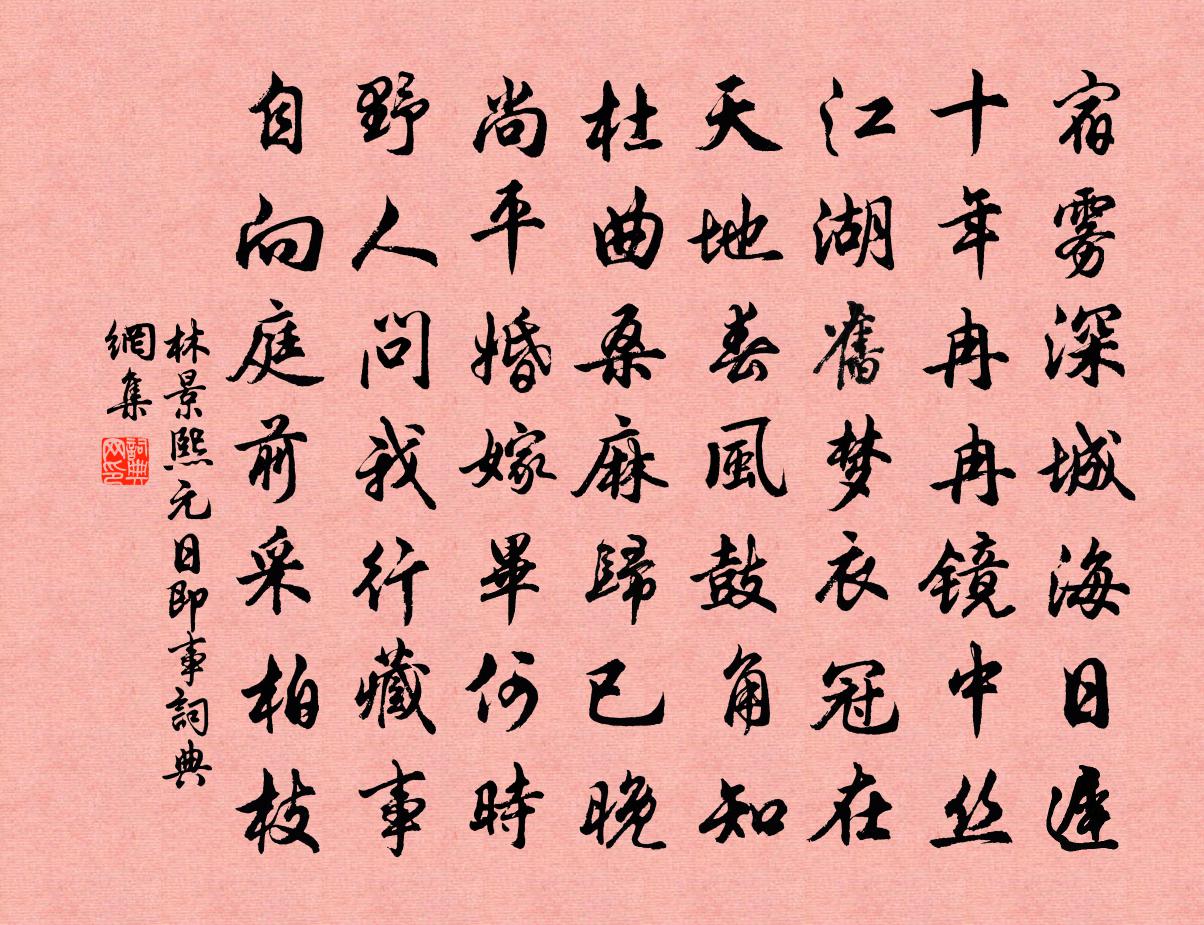 宿雾深城海日遲
十年冉冉鏡中丝
江湖舊梦衣冠在
天地春風鼓角知
杜曲桑麻歸已晚
尚平婚嫁畢何時
野人問我行藏事
自向庭前采柏枝
林景熙元日即事詞典
網集
詞典
网印